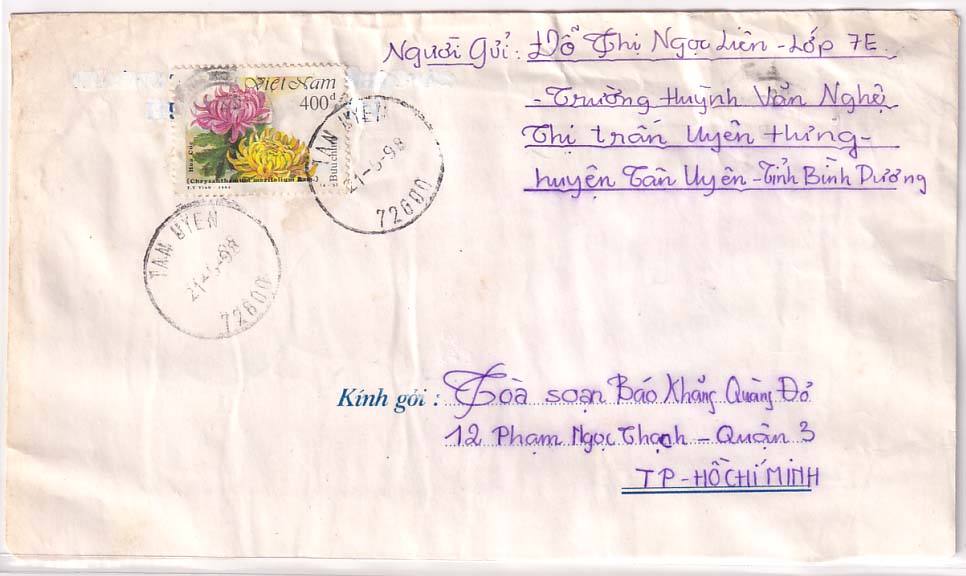 Người Gửi: Đỗ Thị Ngọc Liên - Lớp 7E
- Trường Huỳnh Văn Nghệ
Thị trấn Uyên Hưng -
huyện Tân Uyên - Tỉnh Bình Dương
Việt Nam
400đ
Bưu chính
Hoa Cúc
(Chrysanthemum morifolium Ram.)
TAN UYEN
21-5-98
72600
TAN UYEN
72600
Kính gởi : Tòa soạn Báo Khăng Quàng Đỏ
12 Phạm Ngọc Thạch - Quận 3
TP - HỒ CHÍ MINH